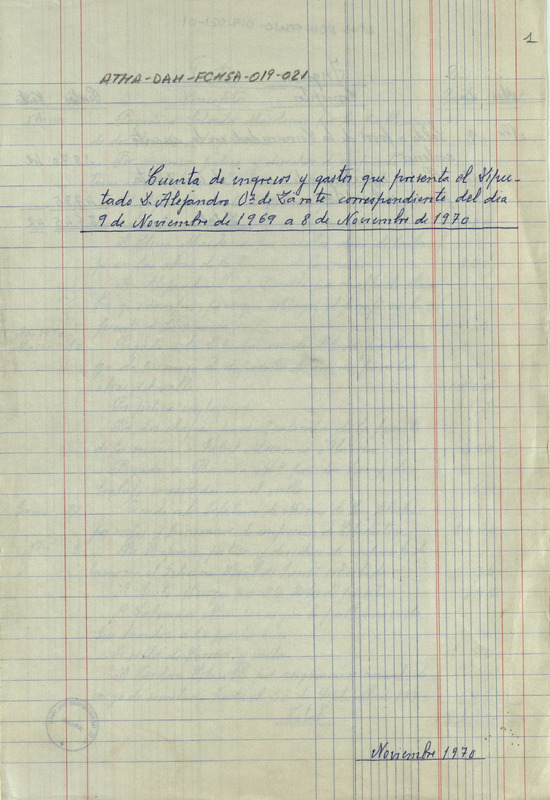 1
ATHA-DAH-FCHSA-019-021
Cuenta de ingresos y gastos que presenta el Dipu-
tado D. Alejandro Oz. de Zarate correspondiente del dia
9 de Noviembre de 1969 a 8 de Noviembre de 1970
Noviembre 1970